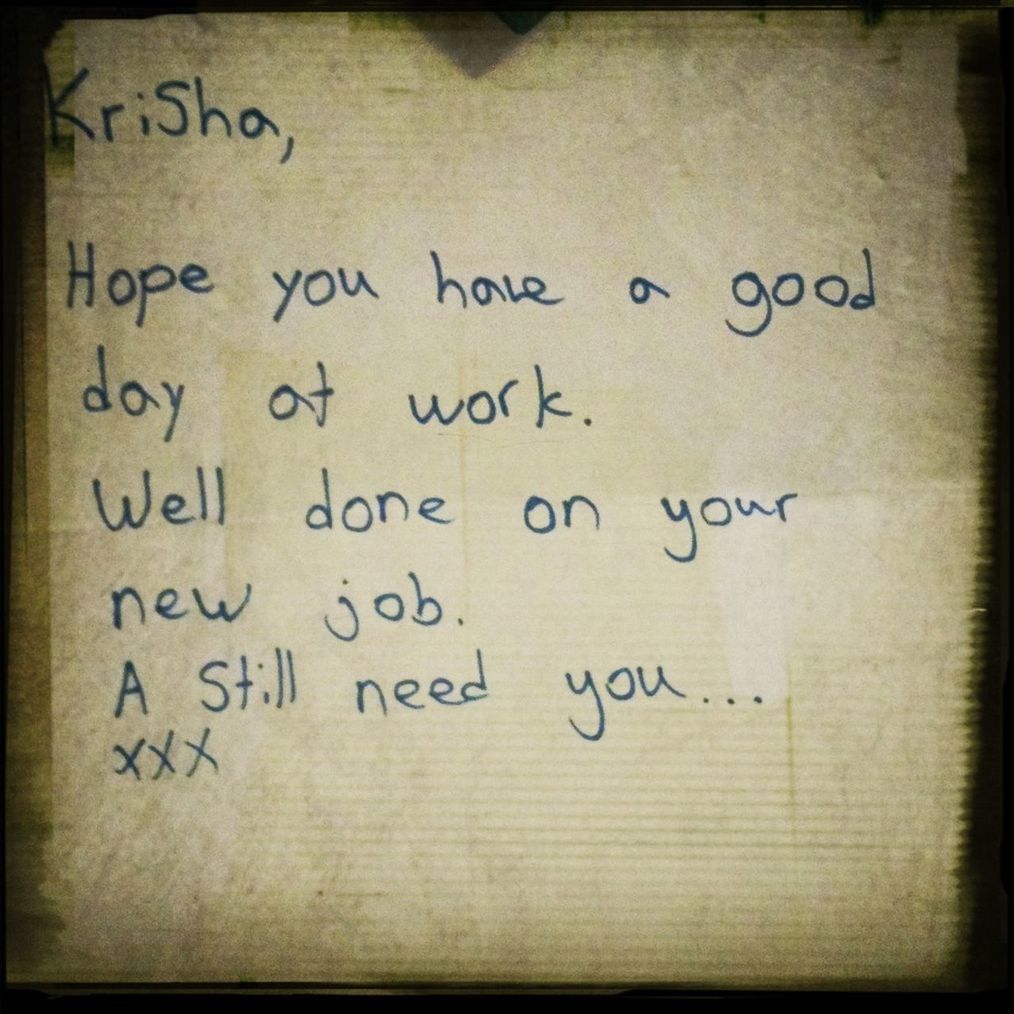 KriSha,
Hope you have a good
day at work.
Well done on your
new job.
A Still need you...
xxx